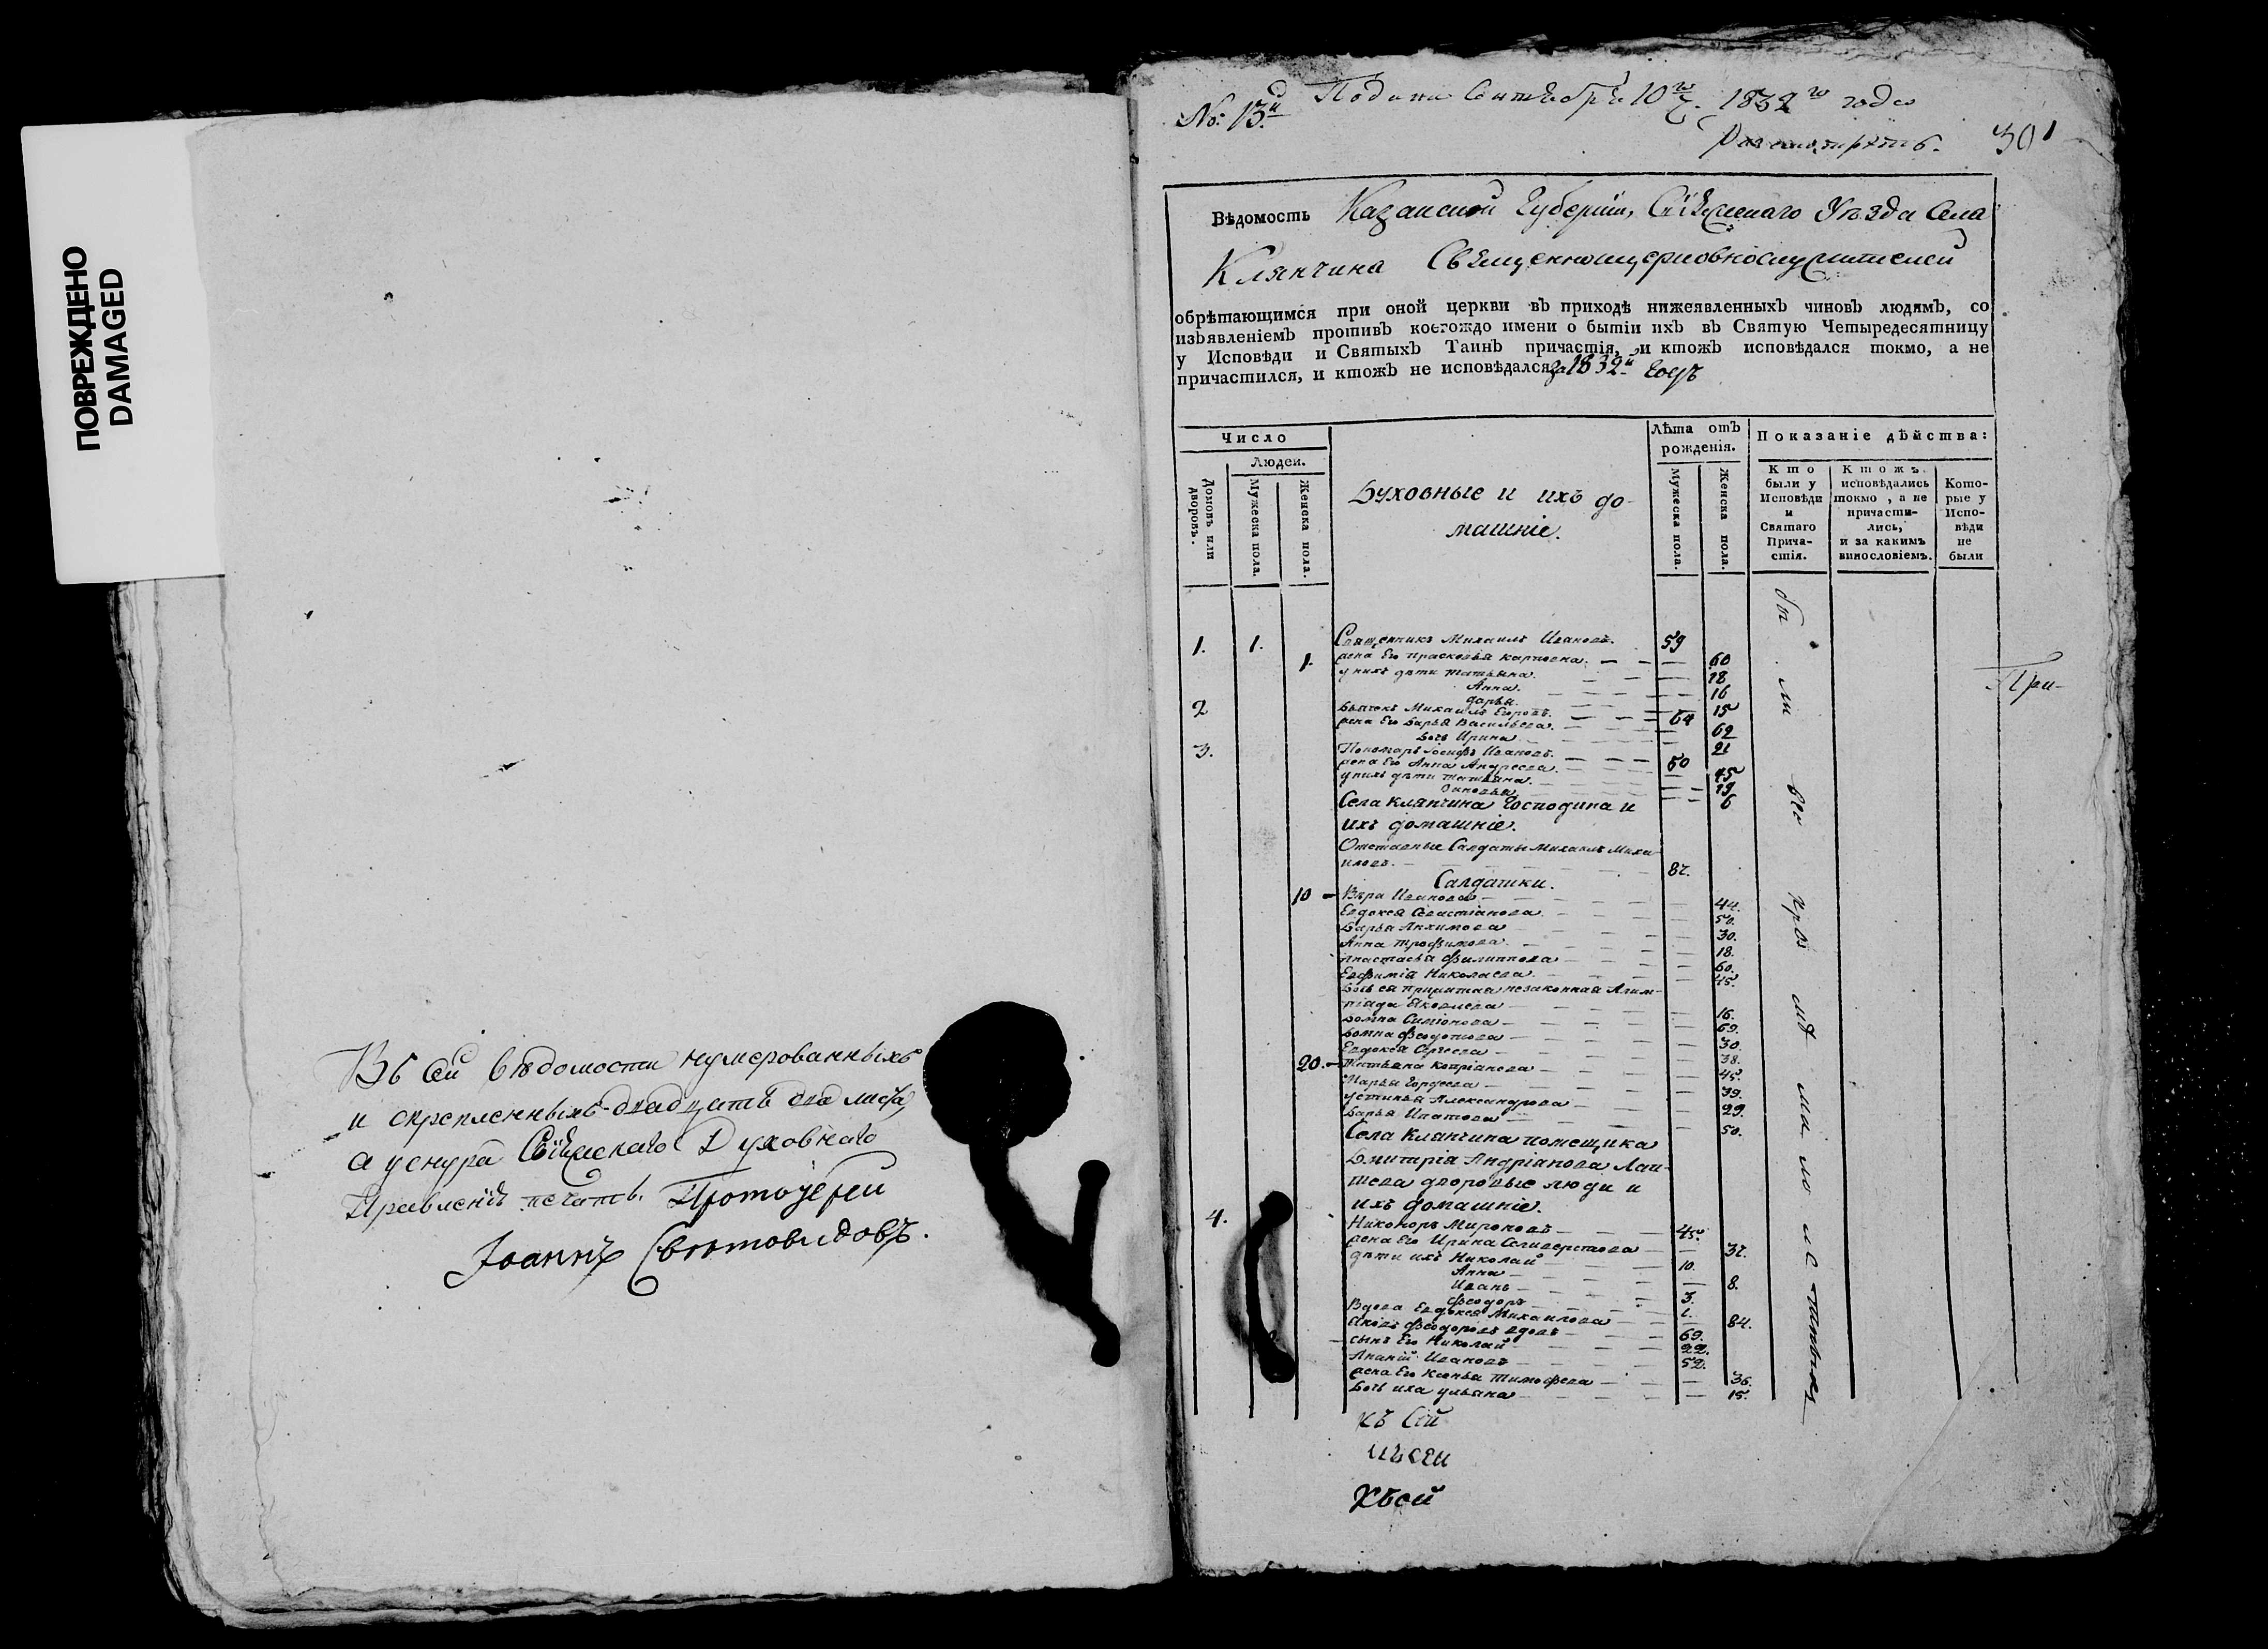 ПОВРЕЖДЕНО
DAMAGED
Въ сей вѣдомости нумерованныхъ
и скрепленныхъ двадцать два листа
а у снура Свіяжскаго Духовнаго
Правленія печать. Протоіерей
Іоаннъ Святовидовъ.
№: 13й Подана Сентября 10го 1832го года
301
Вѣдомость Казанской Губерніи, Свіяжскаго Уѣзда Села
Клянчина Священноцерковнослужителей
обрѣтающимся при оной церкви въ приходѣ нижеявленныхъ чиновъ людямъ, со
изъявленіемъ противъ коегождо имени о бытіи ихъ въ Святую Четыредесятницу
у Исповѣди и Святыхъ Таинъ причастія, и ктожъ исповѣдался токмо, а не
причастился, и ктожъ не исповѣдался за 1832й Годъ
Число
Людей.
Домовъ или дворовъ.
Мужеска пола.
Женска пола.
Духовные и ихъ до-
машніе.
Лѣта отъ рожденія.
Мужеска пола.
Женска пола.
Показаніе дѣйства:
Кто были у Исповѣди и Святаго Причастія.
Ктожъ исповѣдались токмо, а не причасти-
лись, и за какимъ винословіемъ.
Кото-
рые у Испо-
вѣди не были
1. 1. Священникъ Михаилъ Ивановъ. 59
1. жена Его Прасковья Карповна. 60
у нихъ дѣти Татьяна. 18
Анна. 16
Дарья. 15
2 Дьячекъ Михаилъ Егоровъ. 64
жена Его Дарья Васильева. 62
Дочь Ирина 21
3. Пономарь Іосифъ Ивановъ. 50
жена Его Анна Андреева. 45
у нихъ дѣти Татьяна. 19
6
Села Клянчина Господина и
ихъ домашніе.
Отставные Салдаты Михаилъ Миха-
иловъ. 87.
Салдатки.
10 Вѣра Иванова 44.
Евдокея Севастіанова 50.
Дарья Анхимова 30.
Анна Трофимова 18.
Анастасья Филиппова 60.
Евфимія Николаева 45.
Дочь ея прижитая незаконная Алим-
піада Яковлева 16.
Домна Симіонова 69.
Домна Феодотова 30.
Евдокея Сергеева 38.
20. Татьяна Копріанова 45.
Марья Гордеева 39.
Устинья Александрова 29.
Дарья Ипатова 50.
Села Клянчина помещика
Дмитрія Андріанова Лап-
тева дворовые люди и
ихъ домашніе.
4. Никоноръ Мироновъ 45.
жена Его Ирина Селиверстова 37.
дѣти ихъ Николай 10.
Анна 8.
Иванъ 3.
Феодоръ 1.
Вдова Евдокея Михаилова 84.
Яковъ Феодоровъ вдовъ 69.
сынъ Его Николай 22.
Ананій Ивановъ 52.
жена Его Ксенья Тимофеева 36.
Дочь ихъ Ульяна 15.
Къ сей
Къ сей
Къ сей
При-